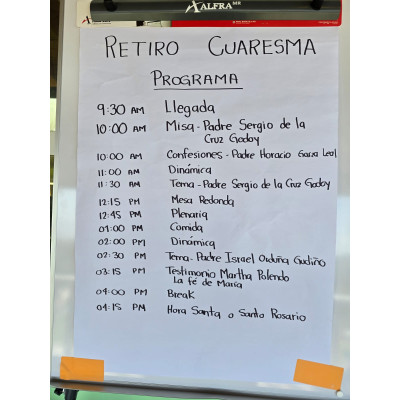 ALFRA MR
RETIRO CUARESMA
PROGRAMA
9:30 AM Llegada
10:00 AM Misa - Padre Sergio de la
Cruz Godoy
10:00 AM Confesiones - Padre Horacio Garia Leal
11:00 AM Dinámica
11:30 AM Tema - Padre Sergio de la Cruz Godoy
12:15 PM Mesa Redonda
12:45 PM Plenaria
01:00 PM Comida
02:00 PM Dinámica
02:30 PM Tema - Padre Israel Orduña Gudiño
03:15 PM Testimonio Martha Polendo
La fé de María
04:00 PM Break
04:15 PM Hora Santa o Santo Rosario